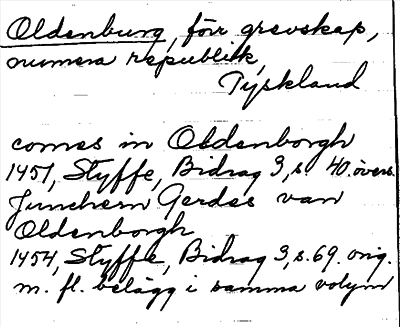 Oldenburg, förr grevskap,
numera republik,
Tyskland
comes in Oldenborgh
1451, Styffe, Bidrag 3, s 40. övers.
Junchern Gerdes van
Oldenborgh
1454, Styffe, Bidrag 3, s. 69. orig.
m. fl. belägg i samma volym